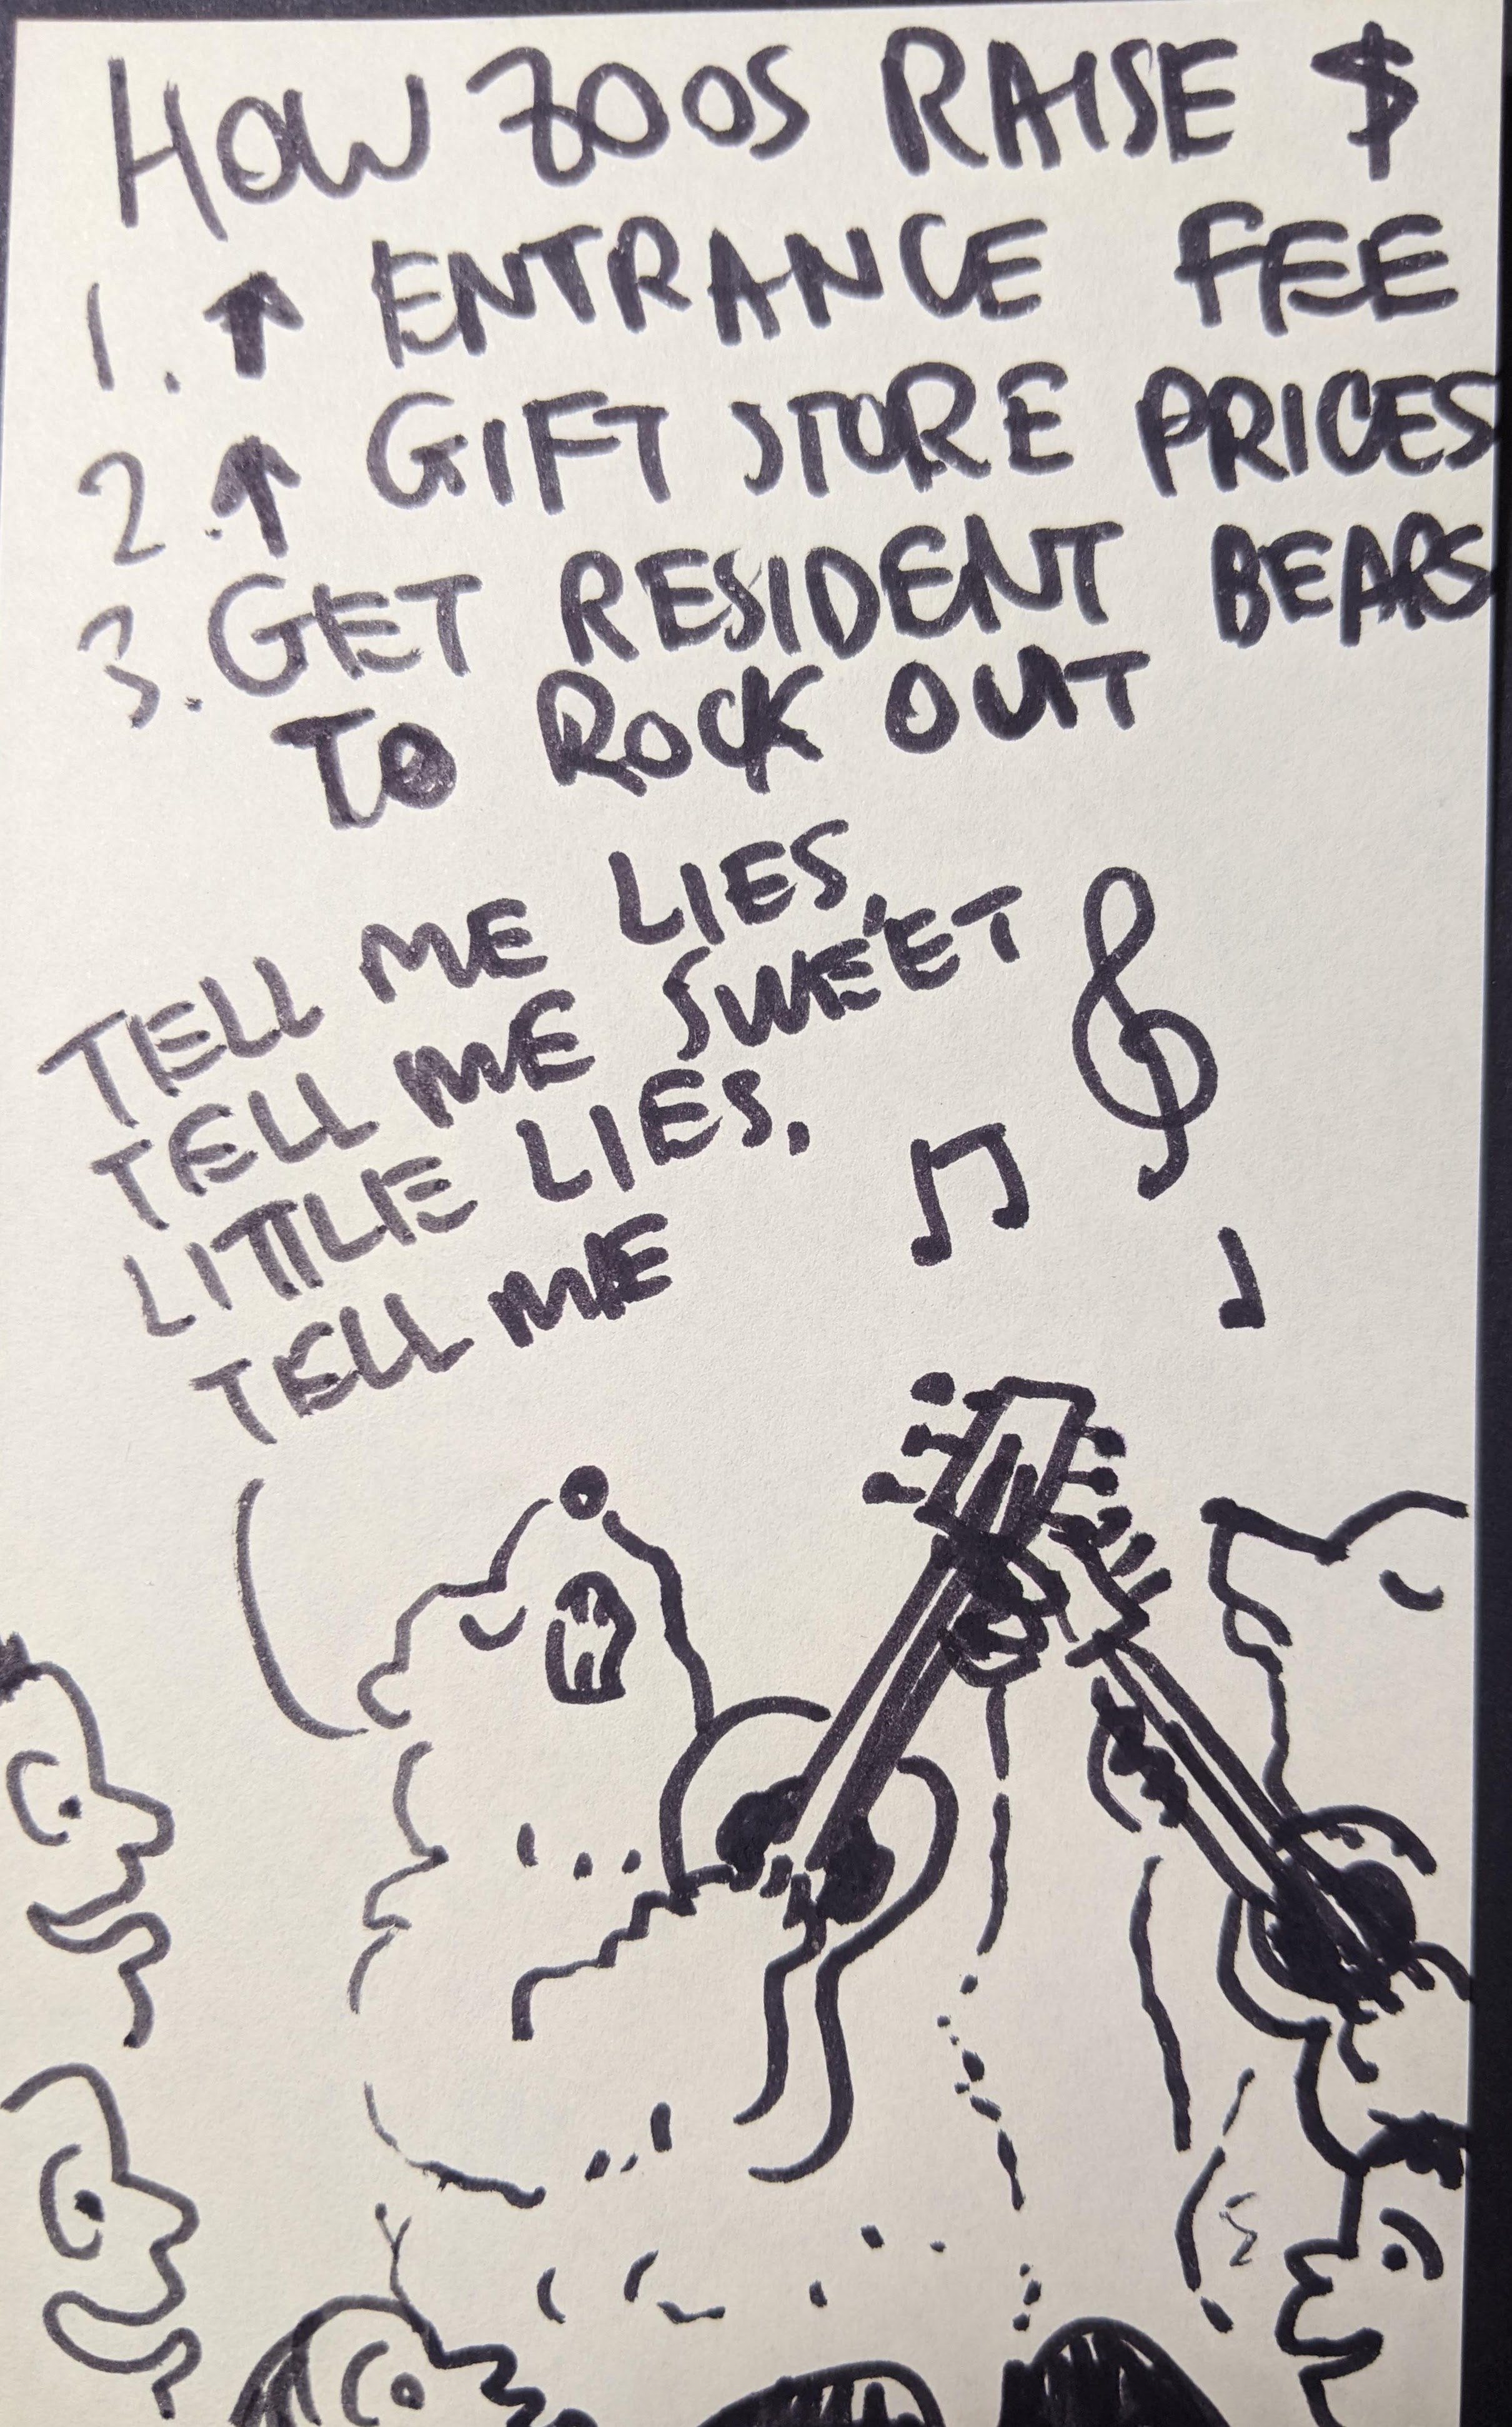 HOW ZOOS RAISE $
1. ↑ ENTRANCE FEE
2. ↑ GIFT STORE PRICES
3. GET RESIDENT BEARS
TO ROCK OUT
TELL ME LIES,
TELL ME SWEET
LITTLE LIES.
TELL ME